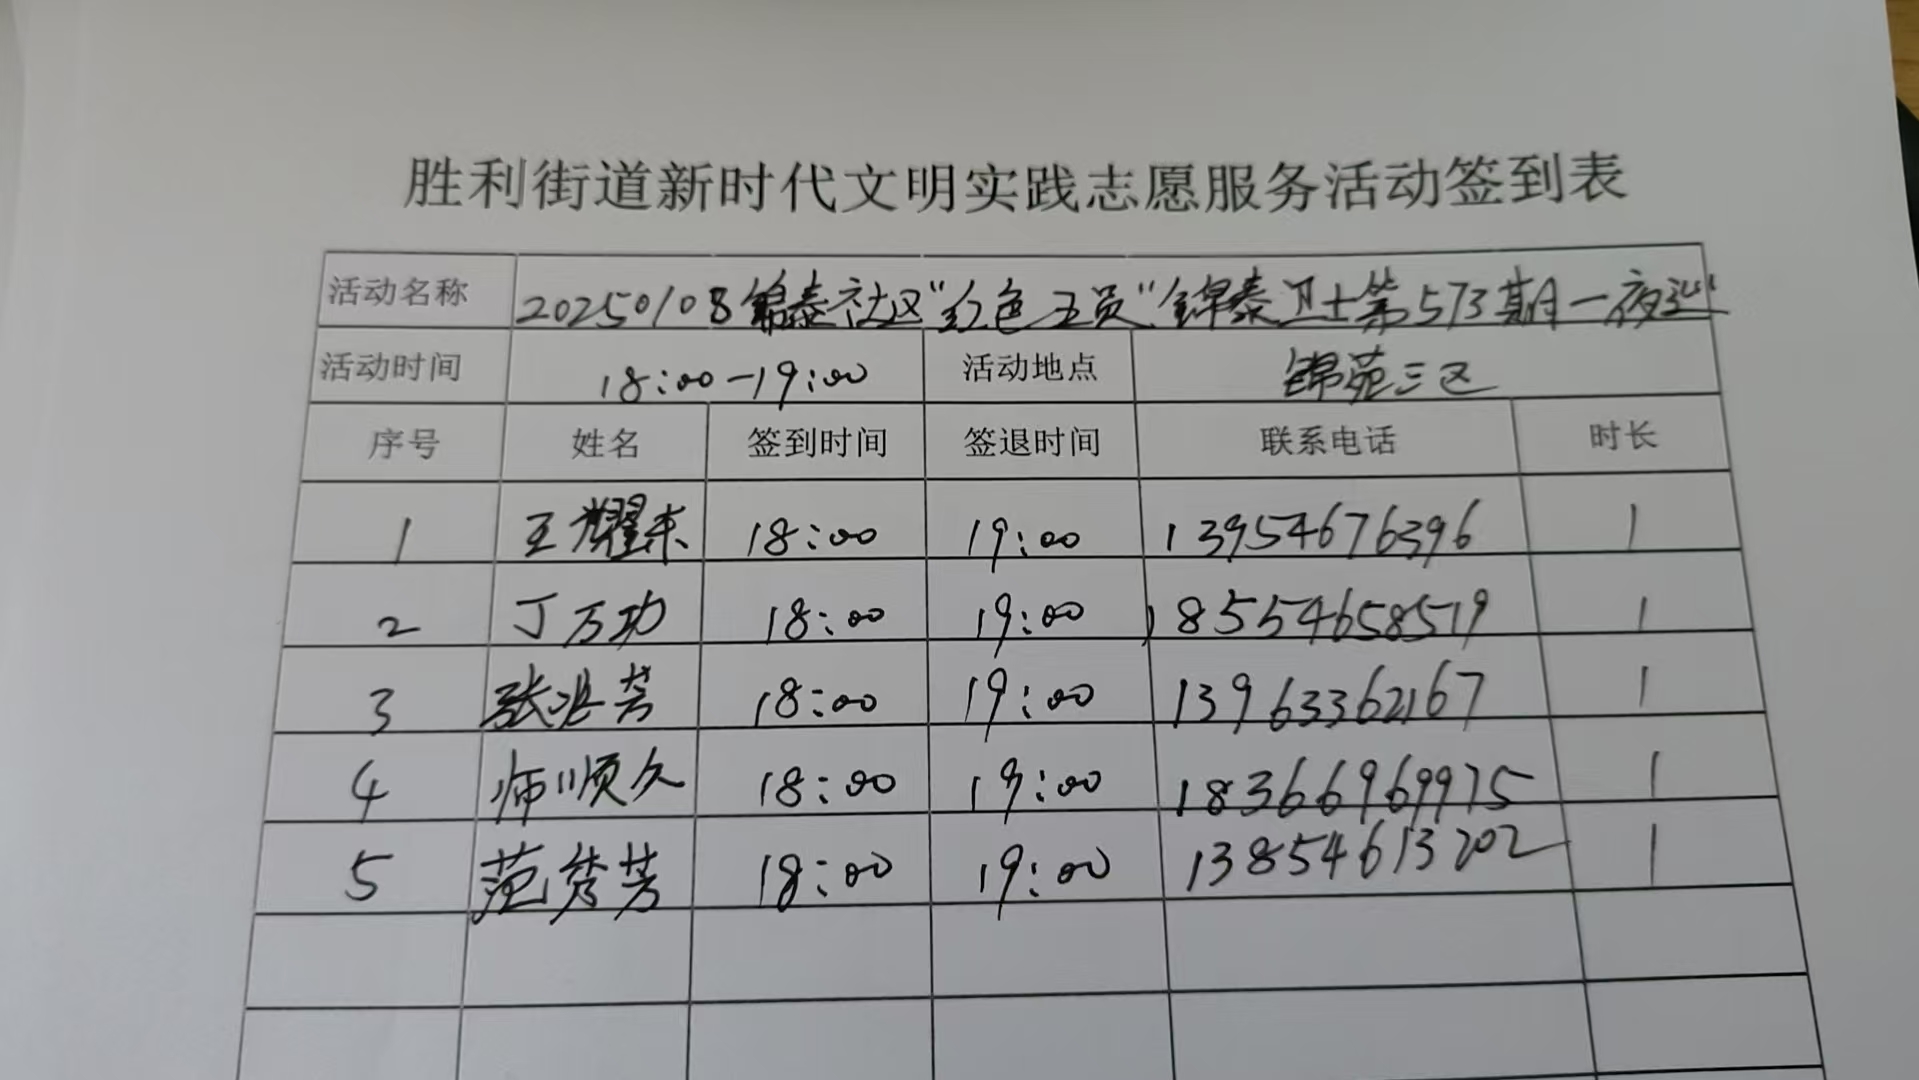 胜利街道新时代文明实践志愿服务活动签到表
活动名称 20250108锦泰社区"红色五员"锦泰卫士第573期一夜巡
活动时间 18:00-19:00 活动地点 锦苑三区
序号 姓名 签到时间 签退时间 联系电话 时长
1 王耀东 18:00 19:00 13954676396 1
2 丁万功 18:00 19:00 18554658519 1
3 张兆芳 18:00 19:00 13963362167 1
4 师顺久 18:00 19:00 18366969975 1
5 范秀芳 18:00 19:00 13854613202 1